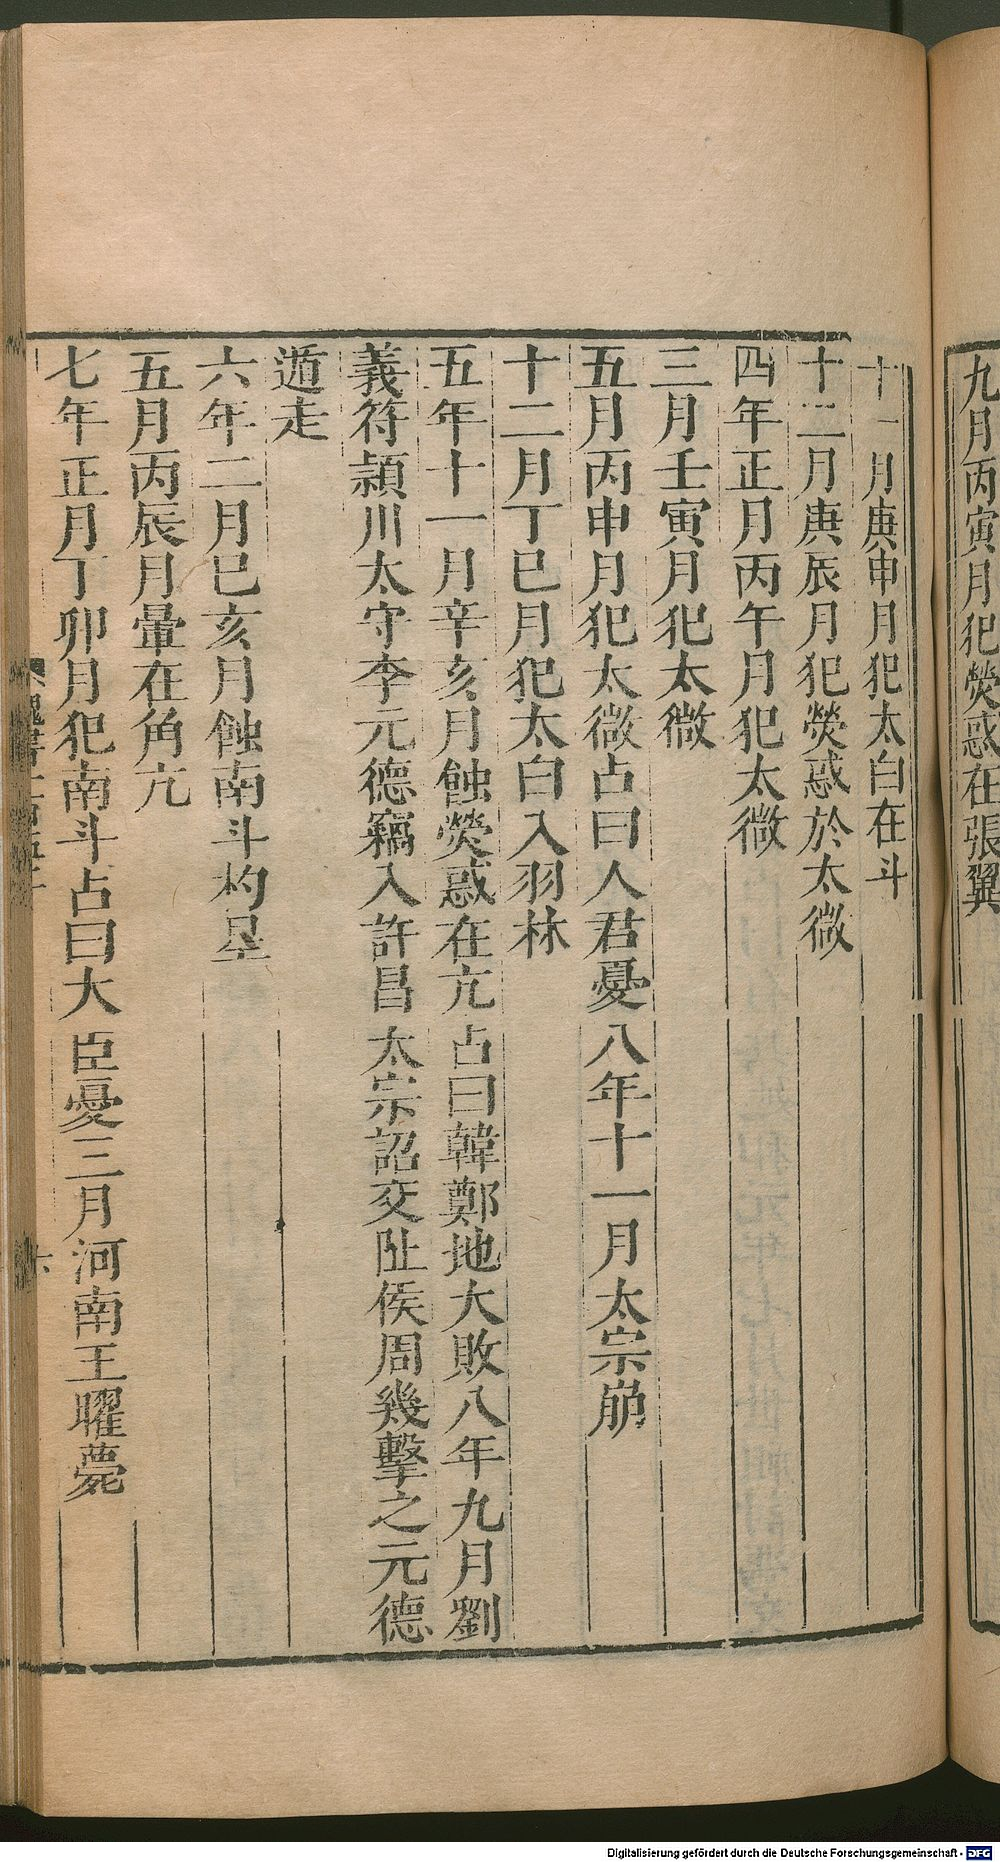 九月丙寅月犯熒惑在張翼
十一月庚申月犯太白在斗
十二月庚辰月犯熒惑於太微
四年正月丙午月犯太微
三月壬寅月犯太微
五月丙申月犯太微占曰人君憂八年十一月太宗崩
十二月丁巳月犯太白入羽林
五年十一月辛亥月蝕熒惑在亢占曰韓鄭地大敗八年九月劉
義符潁川太守李元德竊入許昌太宗詔交阯侯周幾擊之元德
遁走
六年二月巳亥月蝕南斗杓星
五月丙辰月暈在角亢
七年正月丁卯月犯南斗占曰大臣憂三月河南王曜薨
六
Digitalisierung gefördert durch die Deutsche Forschungsgemeinschaft - DFG